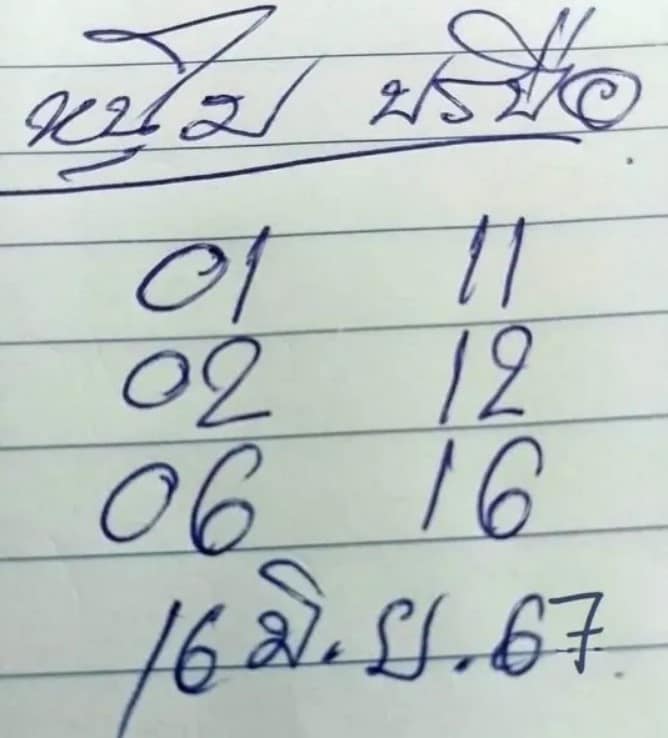 บรบือ
01 11
02 12
06 16
16 มิ.ย.67